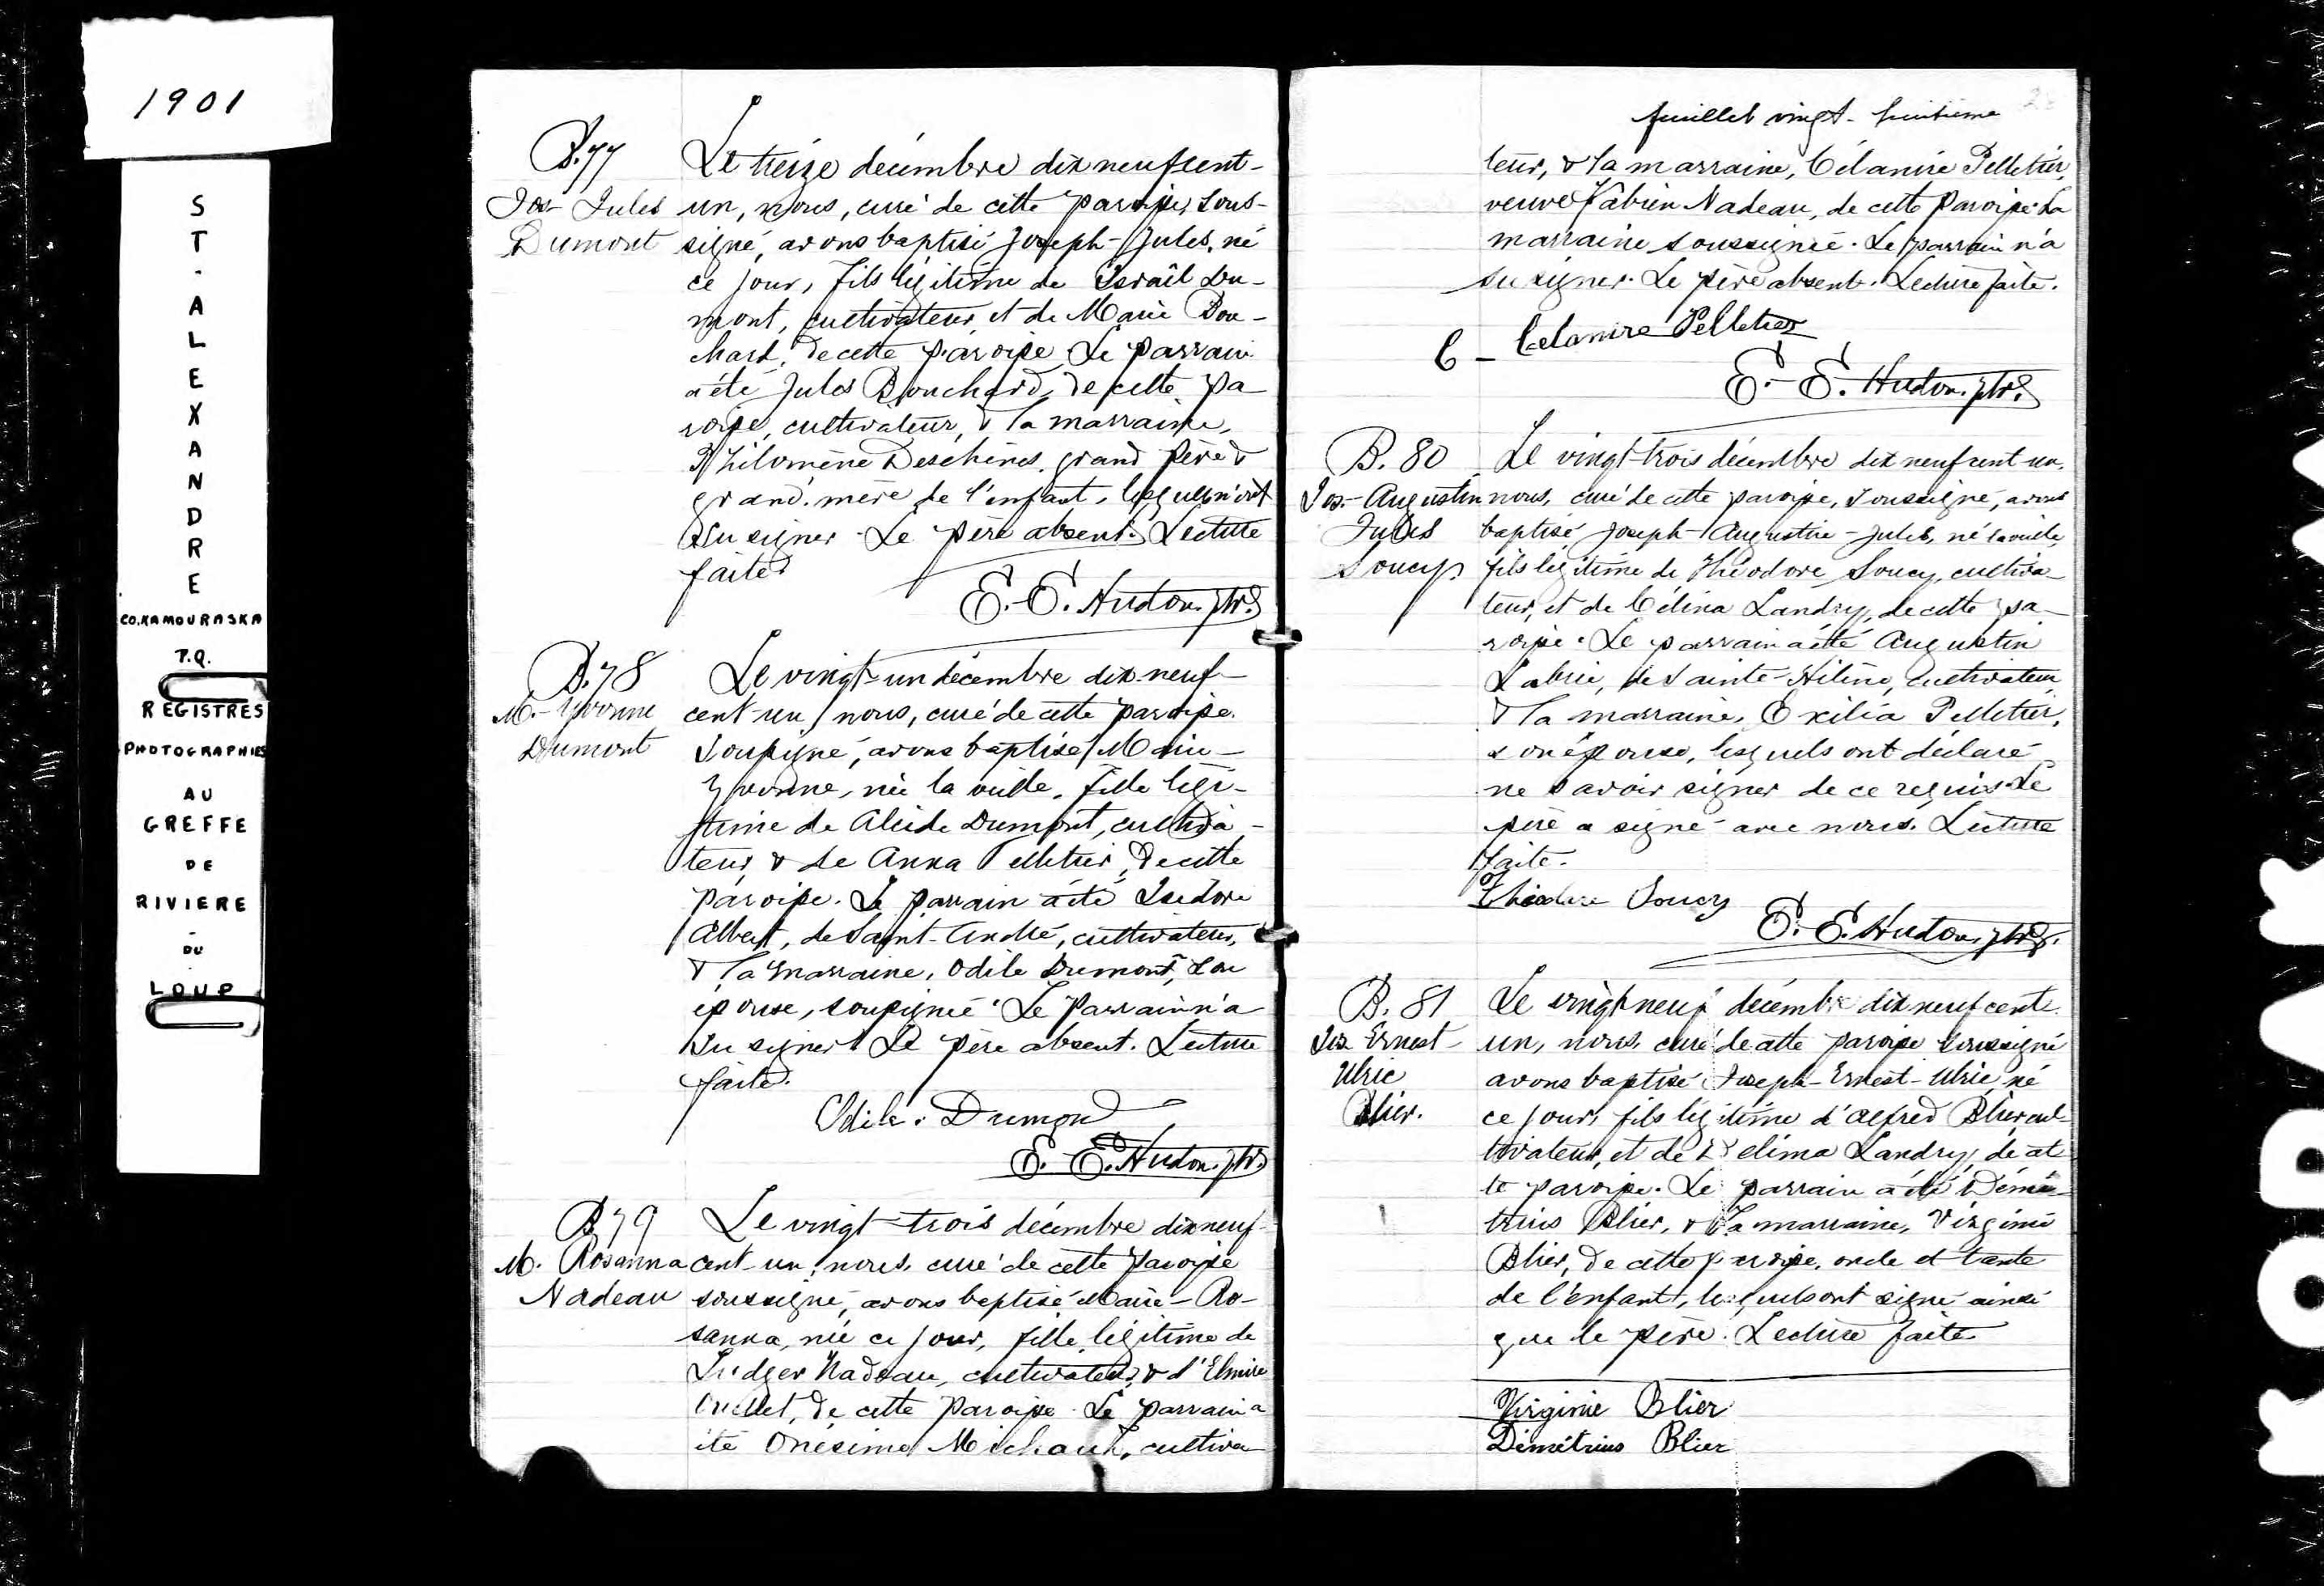 1901
ST-ALEXANDRE
CO. KAMOURASKA
P.Q.
REGISTRES
PHOTOGRAPHIES
AU
GREFFE
DE
RIVIERE
-
DU
LOUP
B.77
Jos-Jules
Dumont
Le treize décembre dix neuf cent-
un, nous, curé de cette paroisse, sous-
signé, avons baptisé Joseph-Jules, né
ce jour, fils légitime de Israël Du-
mont, cultivateur, et de Marie Bou-
chard, de cette paroisse. Le parrain
a été Jules Bouchard, de cette pa
roisse, cultivateur, & la marraine,
Philomène Deschênes, grand père &
grand'mère de l'enfant, lesquels n'ont
su signer. Le père absent. Lecture
faite.
E.-E. Hudon, ptre
B.78
M.-Yvonne
Dumont
Le vingt-un décembre dix-neuf-
cent-un, nous, curé de cette paroisse
soussigné, avons baptisé Marie-
Yvonne, née la veille, fille légi-
time de Alcide Dumont, cultiva-
teur, & de Anna Pelletier, de cette
paroisse. Le parrain a été Isidore
Albert, de Saint-André, cultivateur,
& la marraine, Odile Dumont, son
épouse, soussignée. Le parrain n'a
su signer. Le père absent. Lecture
faite.
Odile Dumond
E.-E. Hudon, ptre
B79
M. Rosanna
Nadeau
Le vingt-trois décembre dix neuf-
cent-un, nous, curé de cette paroisse
soussigné, avons baptisé Marie-Ro-
sanna, née ce jour, fille légitime de
Ludger Nadeau, cultivateur, & d'Elmire
Ouellet, de cette paroisse. Le parrain a
été Onésime Michaud, cultiva
feuillet vingt-huitième
teur, & la marraine, Célanire Pelletier,
veuve Fabien Nadeau, de cette paroisse. La
marraine soussignée. Le parrain n'a
su signer. Le père absent. Lecture faite.
C - Celanire Pelletier
E.-E. Hudon, ptre
B. 80
Jos.-Augustin
Jules
Soucy
Le vingt-trois décembre dix neuf cent un,
nous, curé de cette paroisse, soussigné, avons
baptisé Joseph-Augustin-Jules, né la veille,
fils légitime de Théodore Soucy, cultiva-
teur, et de Célina Landry, de cette pa-
roisse. Le parrain a été Augustin
Labrie, de Sainte-Hélène, cultivateur,
& la marraine, Exilia Pelletier,
son épouse, lesquels ont déclaré
ne savoir signer de ce requis. Le
père a signé avec nous. Lecture
faite.
Théodore Soucy
E.-E. Hudon, ptre
B. 81
Jos Ernest-
Ulric
Blier.
Le vingt neuf décembre dix neuf cent
un, nous, curé de cette paroisse soussigné
avons baptisé Joseph-Ernest-Ulric né
ce jour, fils légitime d'Alfred Blier, cul-
tivateur, et de Zélima Landry, de cet
te paroisse. Le parrain a été Démé-
trius Blier, & la marraine, Virginie
Blier, de cette paroisse, oncle et tante
de l'enfant, lesquels ont signé ainsi
que le père. Lecture faite
Virginie Blier
Démétrius Blier